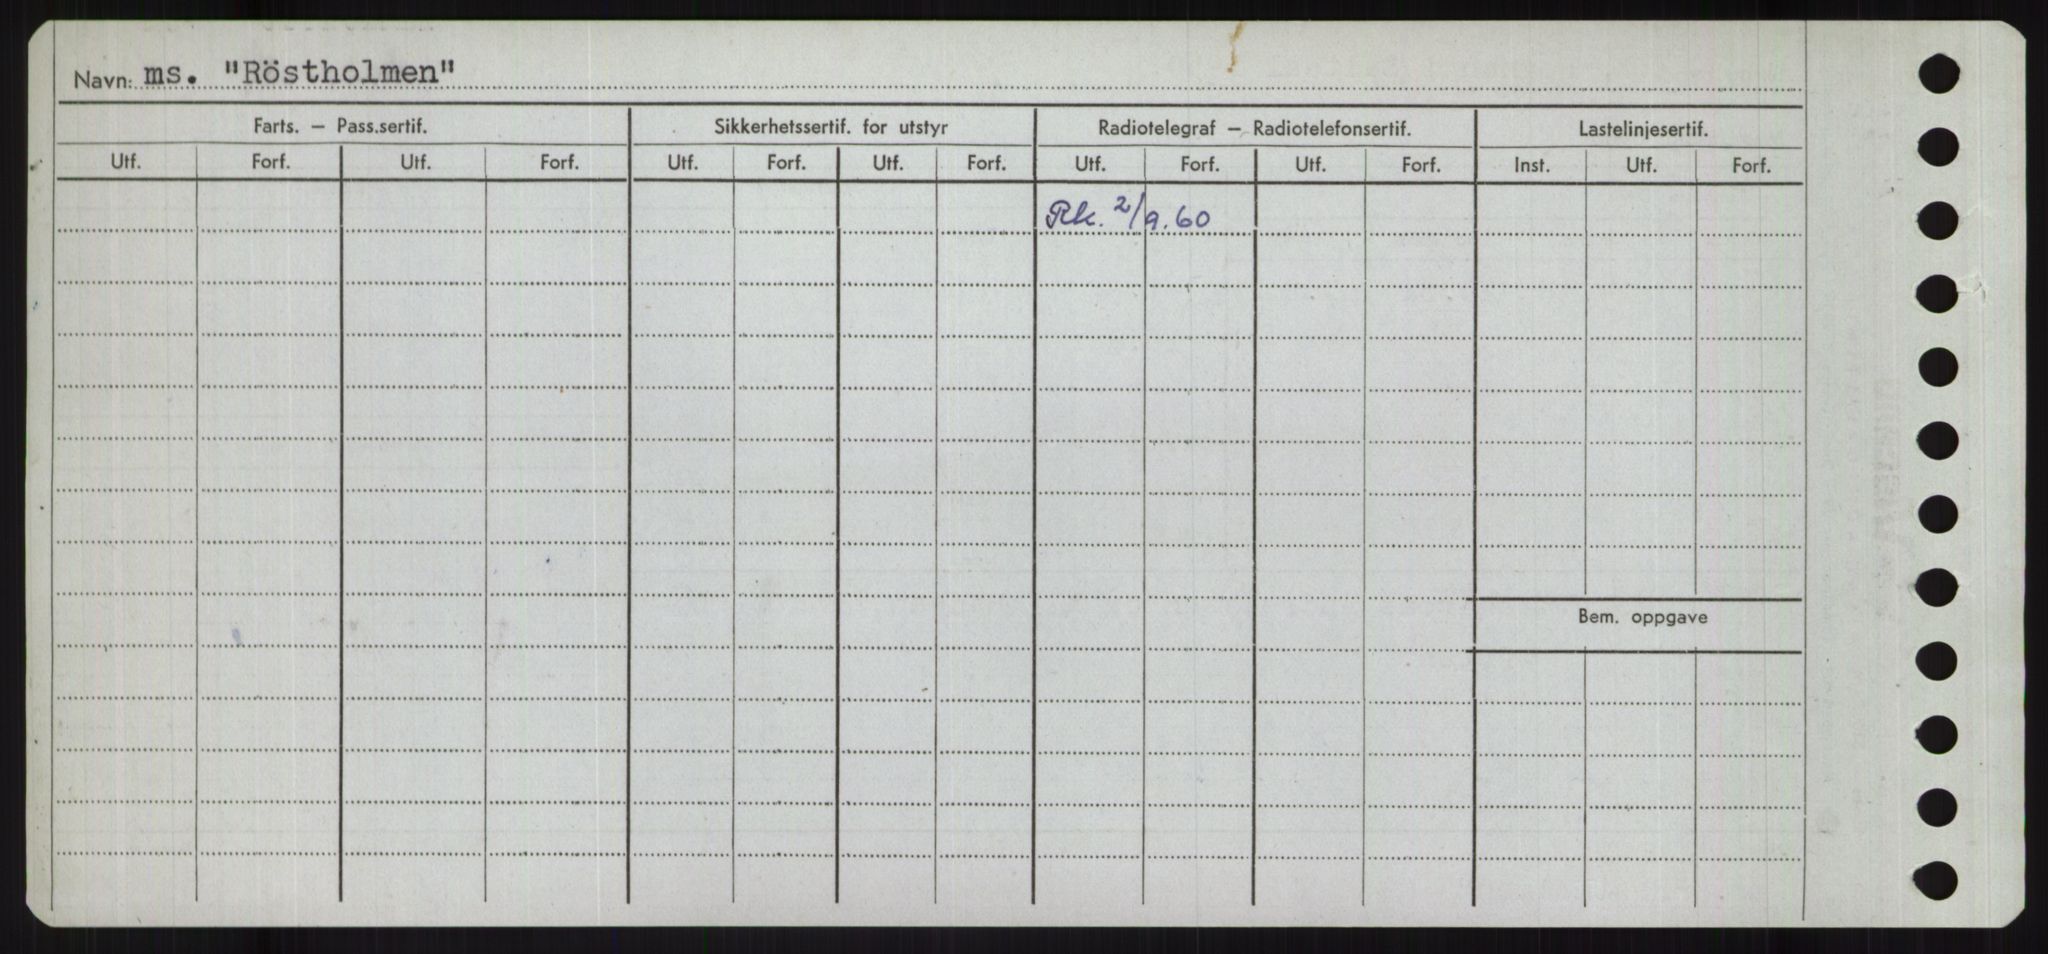 Navn: ms. "Röstholmen"
Farts. – Pass.sertif. Sikkerhetssertif. for utstyr Radiotelegraf – Radiotelefonsertif. Lastelinjesertif.
Utf. Forf. Utf. Forf. Utf. Forf. Utf. Forf. Utf. Forf. Utf. Forf. Inst. Utf. Forf.
Rk. 2/9.60
Bem. oppgave